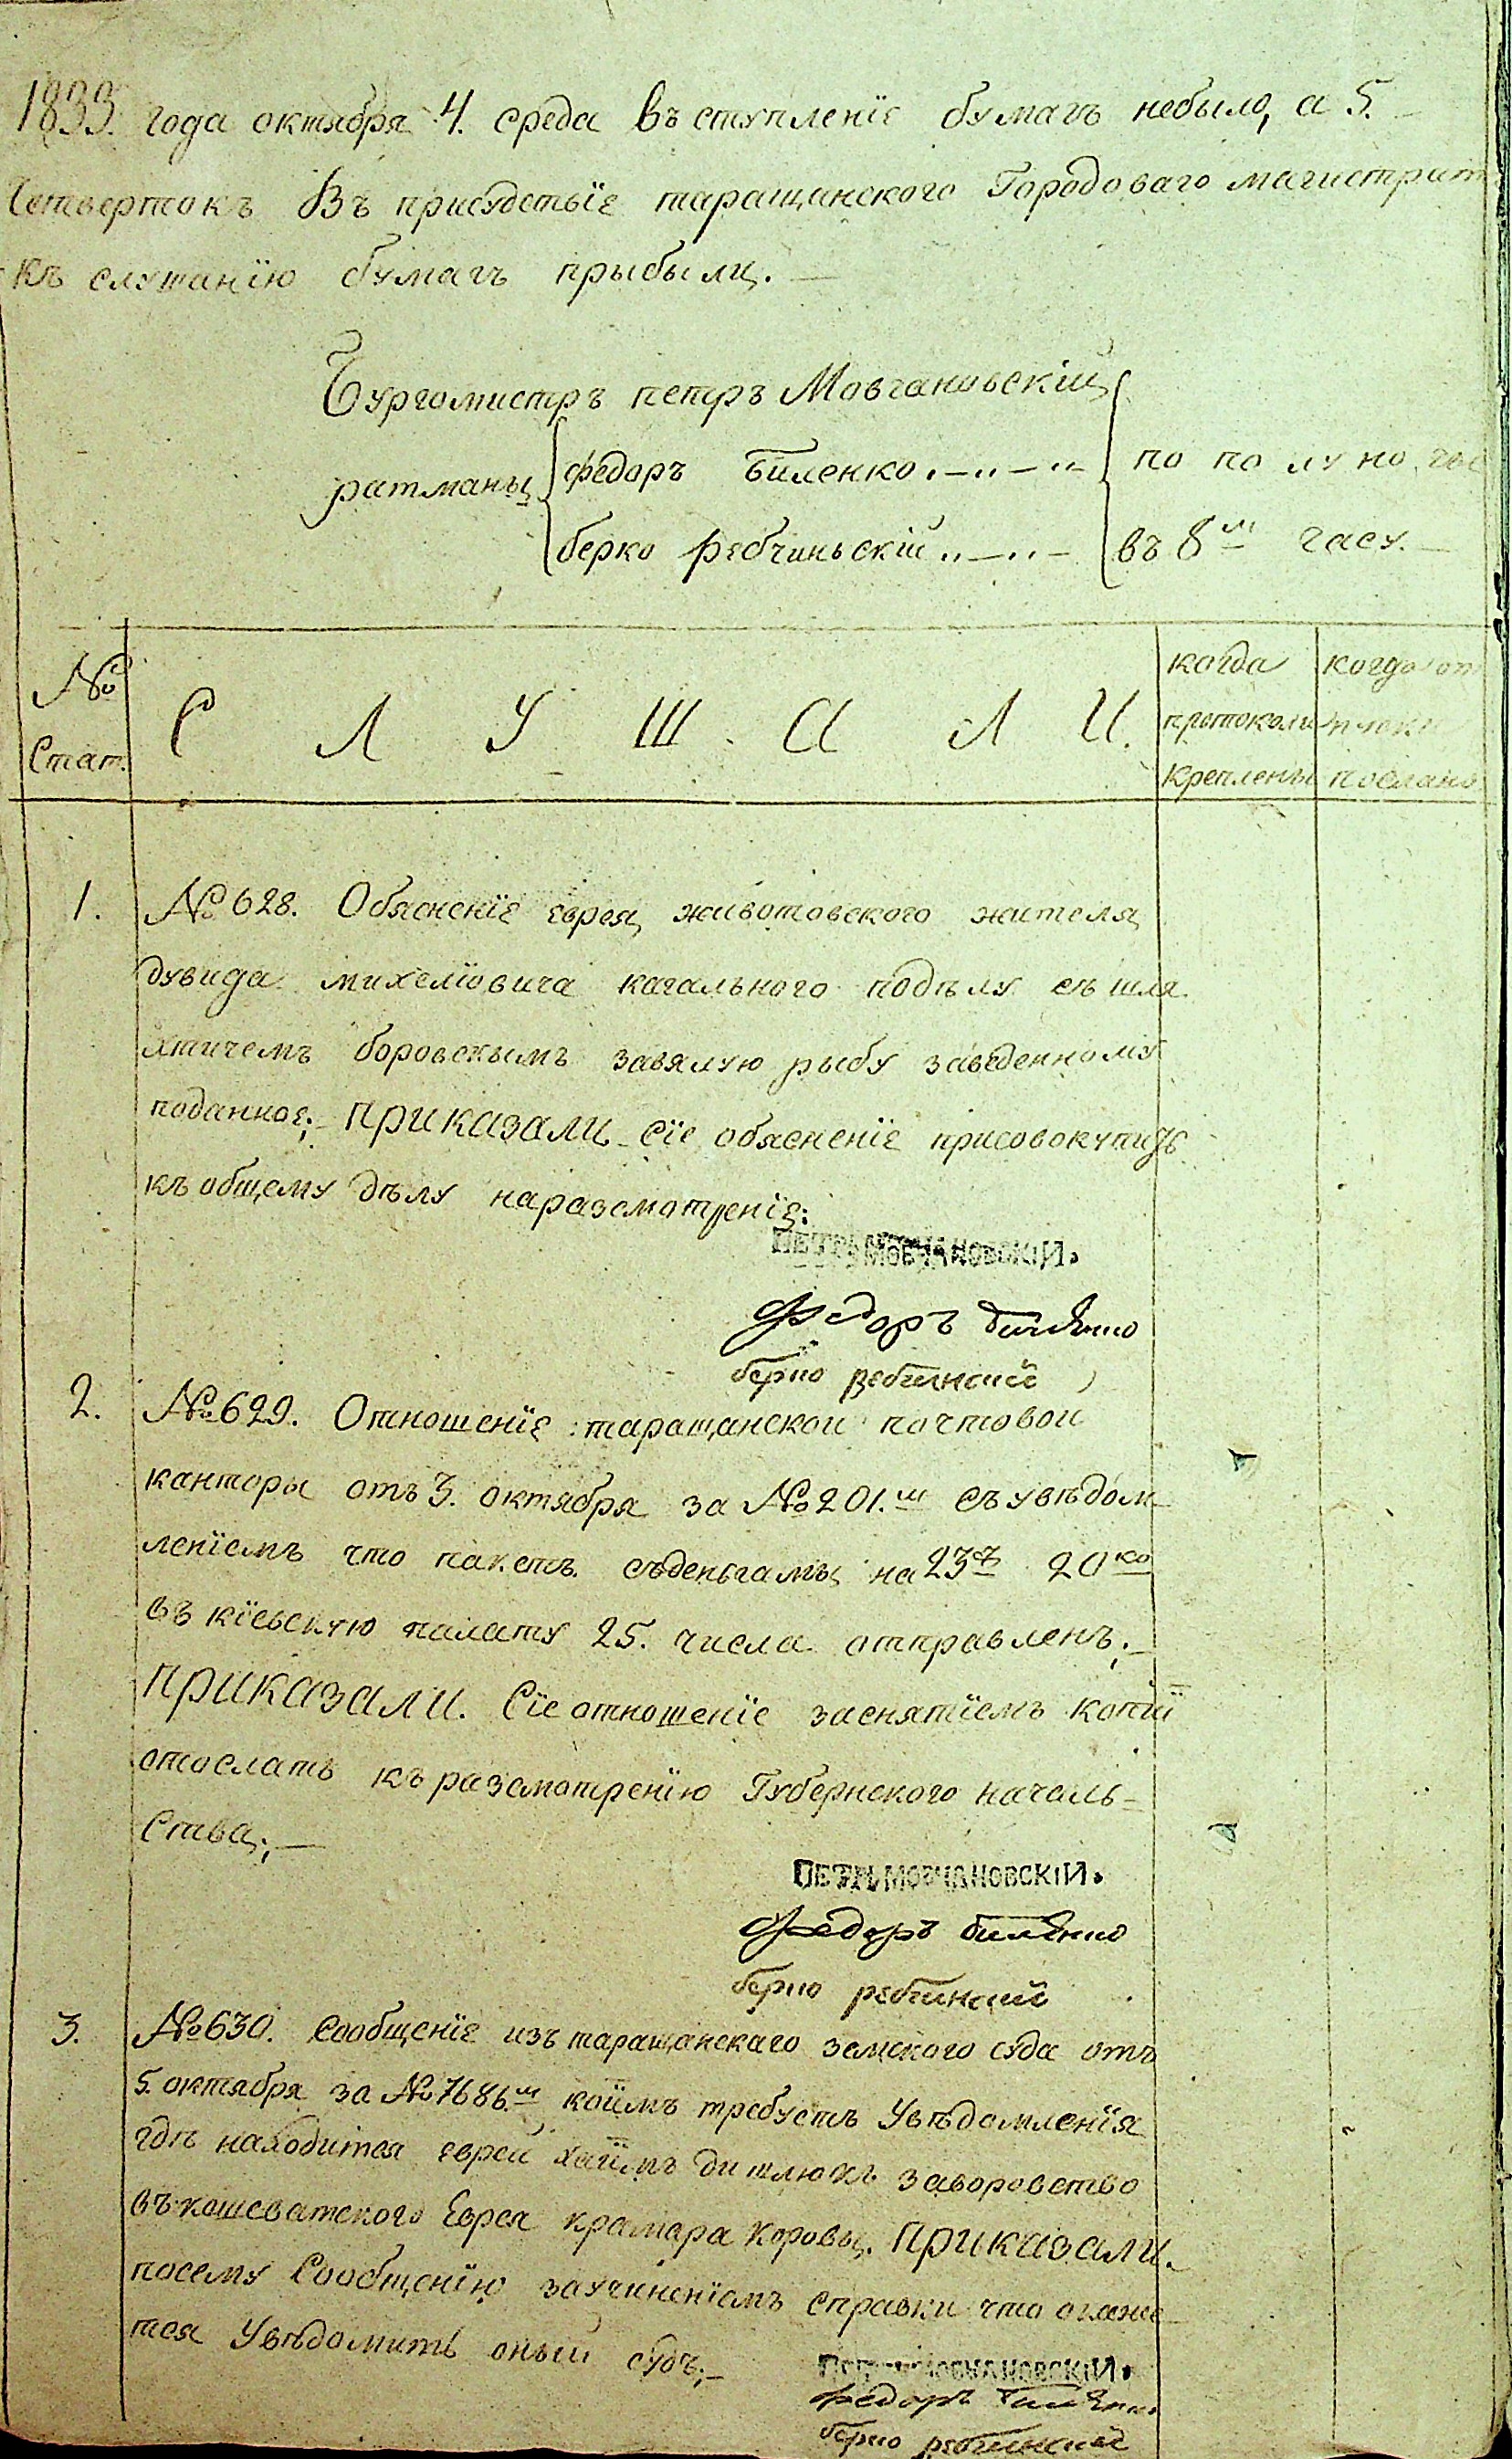 1833. года октября 4. среда въ ступленїе бумагъ небыло, а 5.
Четвертокъ Въ присудствїе таращанского Городоваго магистрат
къ слушанїю бумагъ прыбыли.
Бургомистръ петръ Мовчановьскїй
ратманы федоръ Биленко
по полуноч
берко ребчиньскїй
въ 8м часу.
№
Стат.
С Л У Ш А Л И.
когда
протоколи
крепленъ
когда от
пуски
посланы
1. № 628. Обясненїе еврея животовского жителя
дувида михелїовича кагального подѣлу съ шля
хтичемъ боровскымъ завялую рыбу заведенному
поданное; приказали сїе обясненїе присовокупить
къ общему дѣлу наразсмотренїе:
ПЕТРЪ МОВЧАНОВСКІЙ.
Федоръ Биленко
берко ребчинскїй
2. № 629. Отношенїе таращанской почтовой
канторы отъ 3. октября за № 201.м съ увѣдом
ленїемъ что пакетъ съденьгамы на 23 р 20 ко
въ кїевскую палату 25. числа отправленъ;
приказали. Сїе отношенїе заснятїемъ копїй
отослать къ разсмотренїю Губернского началь-
Ства;
ПЕТРЪ МОВЧАНОВСКІЙ.
Федоръ Биленко
берко ребчинскїй
3. № 630. Сообщенїе изъ таращанскаго земского суда отъ
5. октября за № 7686.м коимъ требуетъ Увѣдомленїя
гдѣ находится еврей хаимъ дишлюкъ заворовство
въ кошеватского Еврея крамара коровы. приказали.
посему Сообщенїю заучиненїемъ справки что окаже
тся Увѣдомить оный судъ;
ПЕТРЪ МОВЧАНОВСКІЙ.
Федоръ Биленко
берко ребчинскїй